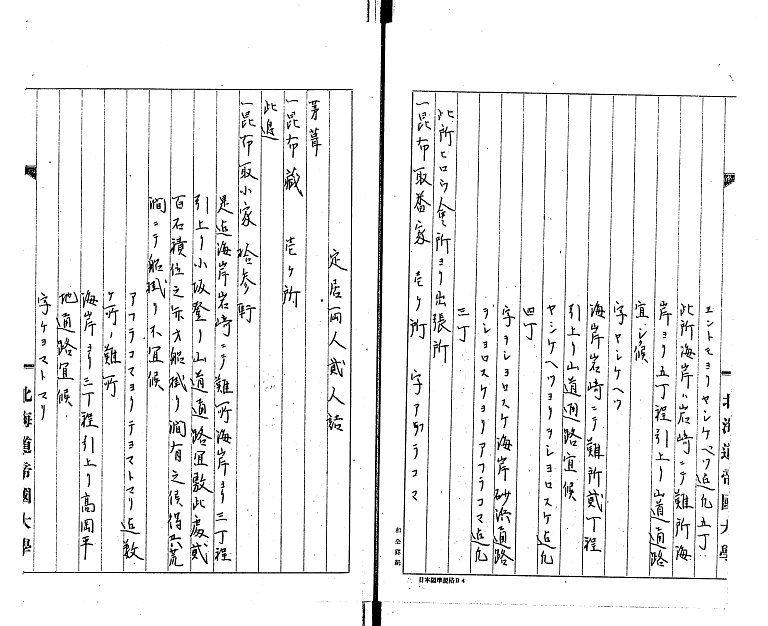 エントモヨリヤンケベツ迄凡五丁
此所海岸ハ岩崎ニテ難所海
岸ヨリ五丁程引上リ山道通路
宜シク候
字ヤンケベツ
海岸岩崎ニテ難所貳丁程
引上リ山道通路宜候
ヤンケベツヨリヲショロスケ迄凡
四丁
字ヲショロスケ海岸砂浜通路
ヲショロスケヨリアフラコマ迄凡
三丁
此所ヒロウ會所ヨリ出張所
一昆布取番家 壱ヶ所 字アフラコマ
北海道帝國大學
日本標準規格B4
定居両人貳人詰
茅葺
一昆布藏 壱ヶ所
此辺
一昆布取小家 拾参軒
是迄海岸岩崎ニテ難所海岸ヨリ三丁程
引上リ小坂登リ山道通路宜敷此處貳
百石積位之弁才船掛リ澗有之候得共荒
澗ニテ船掛リ不宜候
アフラコマヨリケヨマトマリ迄数
ヶ所ノ難所
海岸ヨリ三丁程引上リ高岡平
地通路宜候
字ケヨマトマリ
北海道帝國大學